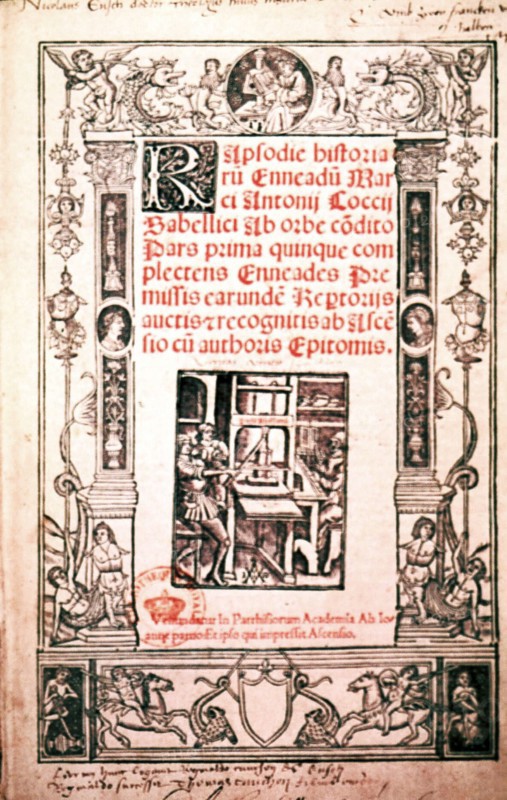 Nicolaus
RApsodie historia
rū Enneadū Mar
ci Antonij Coccij
Sabellici Ab orbe cōdito
Pars prima quinque com
plectens Enneades Pre
missis earundē Reptorijs
auctis ⁊ recognitis ab Ascē
sio cū authoris Epitomis.
Venundatur In Parrhisiorum Academia Ab Io
anne paruo Et ipso qui impressit Ascensio,